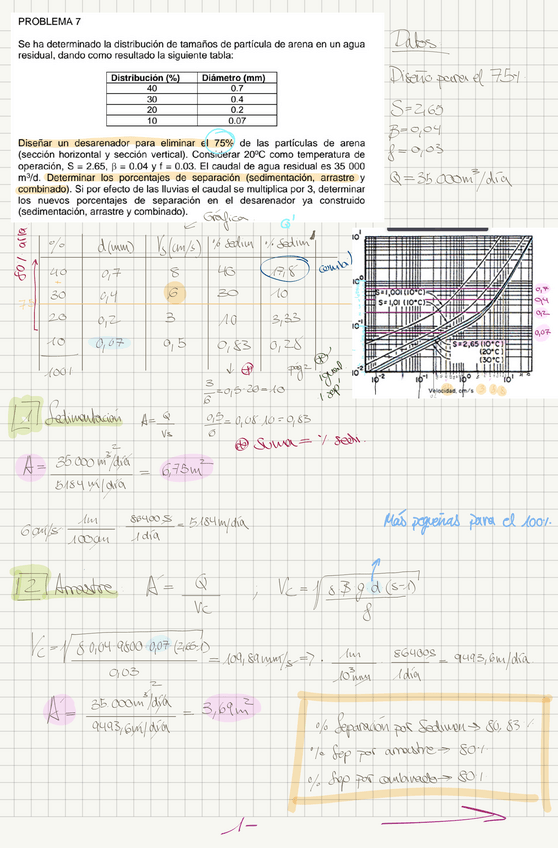 PROBLEMA 7
Se ha determinado la distribución de tamaños de partícula de arena en un agua
residual, dando como resultado la siguiente tabla:
Distribución (%) Diámetro (mm)
40 0.7
30 0.4
20 0.2
10 0.07
Diseñar un desarenador para eliminar el 75% de las partículas de arena
(sección horizontal y sección vertical). Considerar 20ºC como temperatura de
operación, S = 2.65, β = 0.04 y f = 0.03. El caudal de agua residual es 35 000
m³/d. Determinar los porcentajes de separación (sedimentación, arrastre y
combinado). Si por efecto de las lluvias el caudal se multiplica por 3, determinar
los nuevos porcentajes de separación en el desarenador ya construido
(sedimentación, arrastre y combinado).
Datos
Diseño para el 75%
S=2,65
β=0,04
f=0,03
Q=35000m³/día
Gráfica
Q'
% d(mm) Vs(cm/s) % sedim % sedim'
40 0,7 8 40
30 0,4 6 30 10
20 0,2 3 10 3,33
10 0,07 0,5 0,83 0,28
100%
3/6=0,5·20=10
0,5/6=0,08·10=0,83
⊕ Suma = % sedi.
10¹
10⁰
10⁻¹
10⁻²
S=1,001(10°C)
S=1,01(10°C)
S=2,65(10°C)
(20°C)
(30°C)
10⁻² 10⁻¹ 10⁰ 10¹
Velocidad, cm/s
0,7
0,4
0,2
0,07
1 Sedimentación A=Q/Vs
A= 35000m³/día / 5184m/día = 6,75m²
6cm/s · 1m/100cm · 86400s/1día = 5184m/día
Más pequeñas para el 100%
2 Arrastre A'= Q/Vc ; Vc=√(8 β g d (s-1) / f)
Vc=√(8·0,04·9800·0,07·(2,65-1) / 0,03) = 109,89mm/s => · 1m/10³mm · 86400s/1día = 9493,6m/día
A'= 35.000m³/día / 9493,6m/día = 3,69m²
% Separación por Sedimen → 80,83%
% Sep por arrastre → 80%
% Sep por combinado → 80%
1-